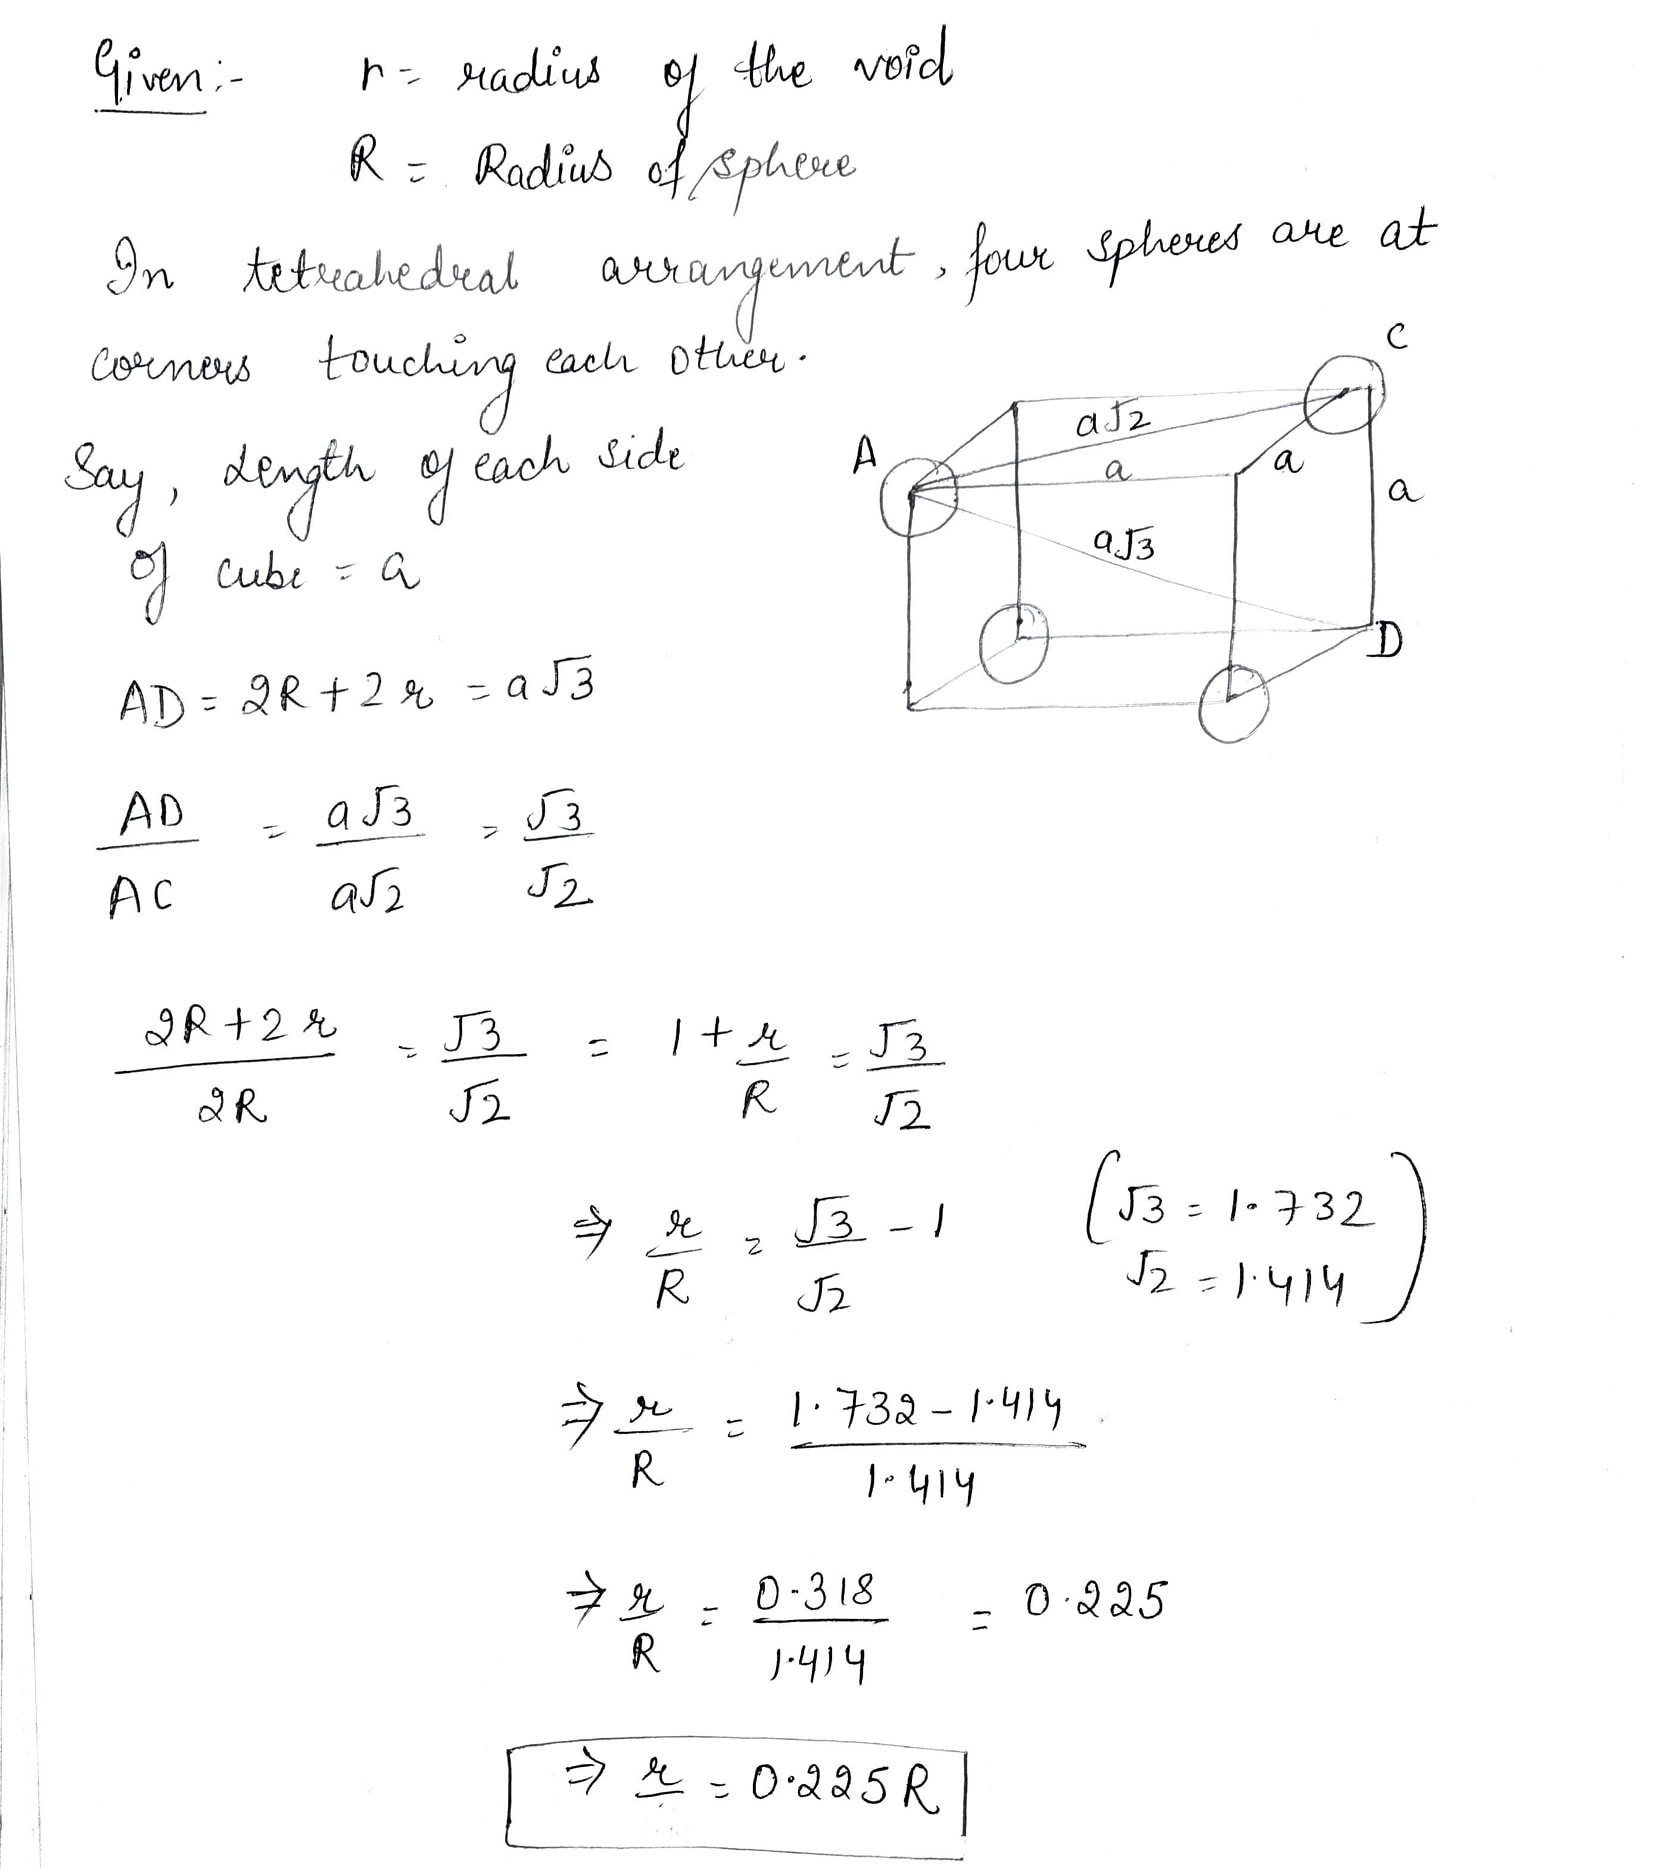 Given:- r = radius of the void
R = Radius of sphere
In tetrahedral arrangement, four spheres are at
corners touching each other.
Say, Length of each side
of cube = a
C
A
a√2
a
a
a
a√3
D
AD = 2R + 2r = a√3
AD/AC = a√3/a√2 = √3/√2
2R + 2r/2R = √3/√2 = 1 + r/R = √3/√2
⇒ r/R = √3/√2 - 1 (√3 = 1.732
√2 = 1.414)
⇒ r/R = 1.732 - 1.414/1.414
⇒ r/R = 0.318/1.414 = 0.225
⇒ r = 0.225R